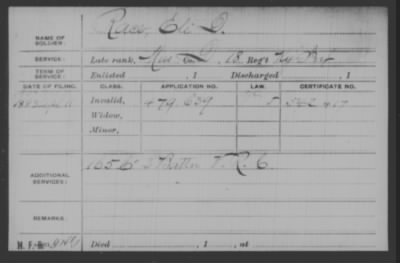 NAME OF SOLDIER: Race, Eli D.
SERVICE: Late rank, Mus Co. D, 18 Reg't Ky Inf
TERM OF SERVICE: Enlisted , 1 Discharged , 1
DATE OF FILING. CLASS. APPLICATION NO. LAW. CERTIFICATE NO.
1883 Invalid, 479 639
Widow,
Minor,
ADDITIONAL SERVICES: 165 Co 2 Battn V. R. C.
REMARKS:
Died , 1 , at